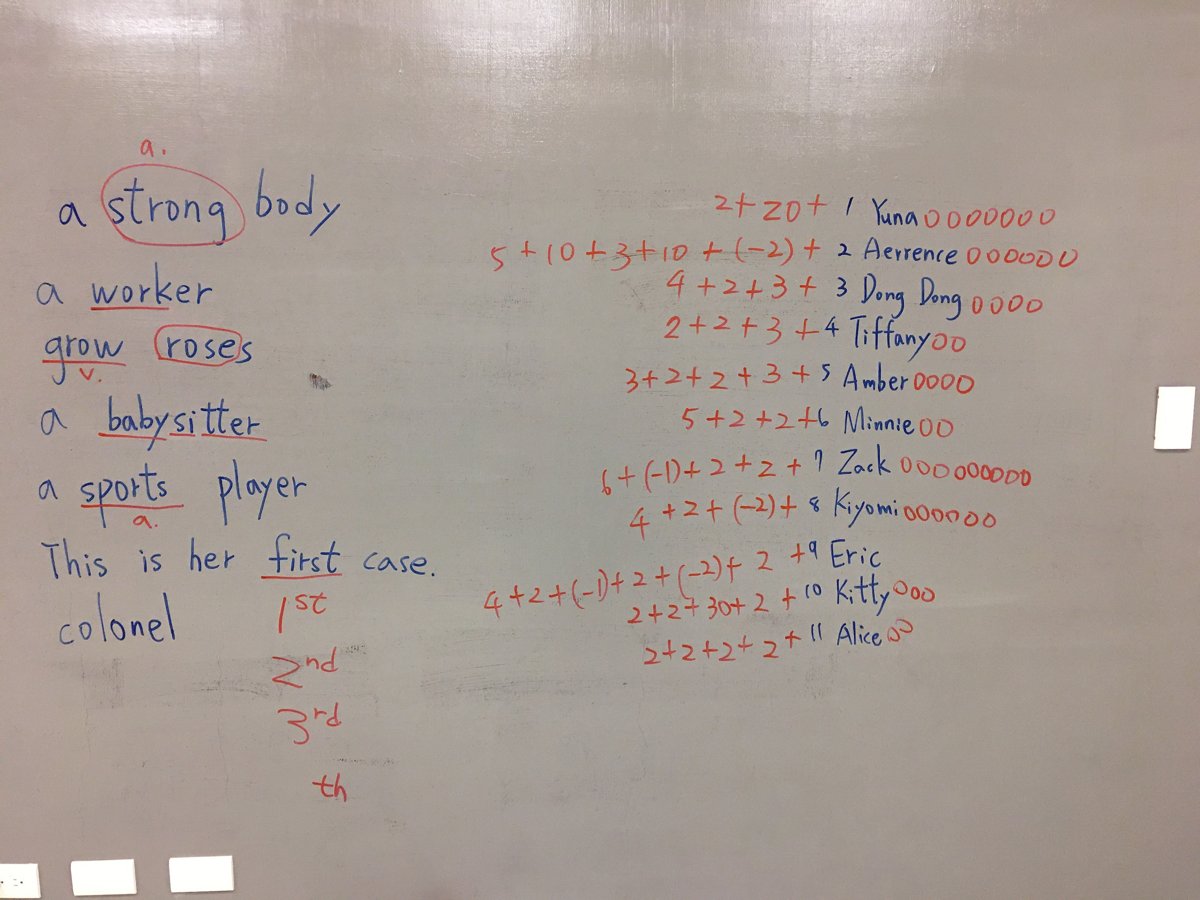 a.
a strong body
a worker
grow roses
v.
a babysitter
a sports player
a.
This is her first case.
colonel
1st
2nd
3rd
th
2+20+ 1 Yuna 0000000
5+10+3+10+(-2)+ 2 Aerrence 000000
4+2+3+ 3 Dong Dong 0000
2+2+3+ 4 Tiffany 00
3+2+2+3+ 5 Amber 0000
5+2+2+ 6 Minnie 00
6+(-1)+2+2+ 7 Zack 000000000
4+2+(-2)+ 8 Kiyomi 000000
4+2+(-1)+2+(-2)+2+ 9 Eric
2+2+30+2+ 10 Kitty 000
2+2+2+2+ 11 Alice 00